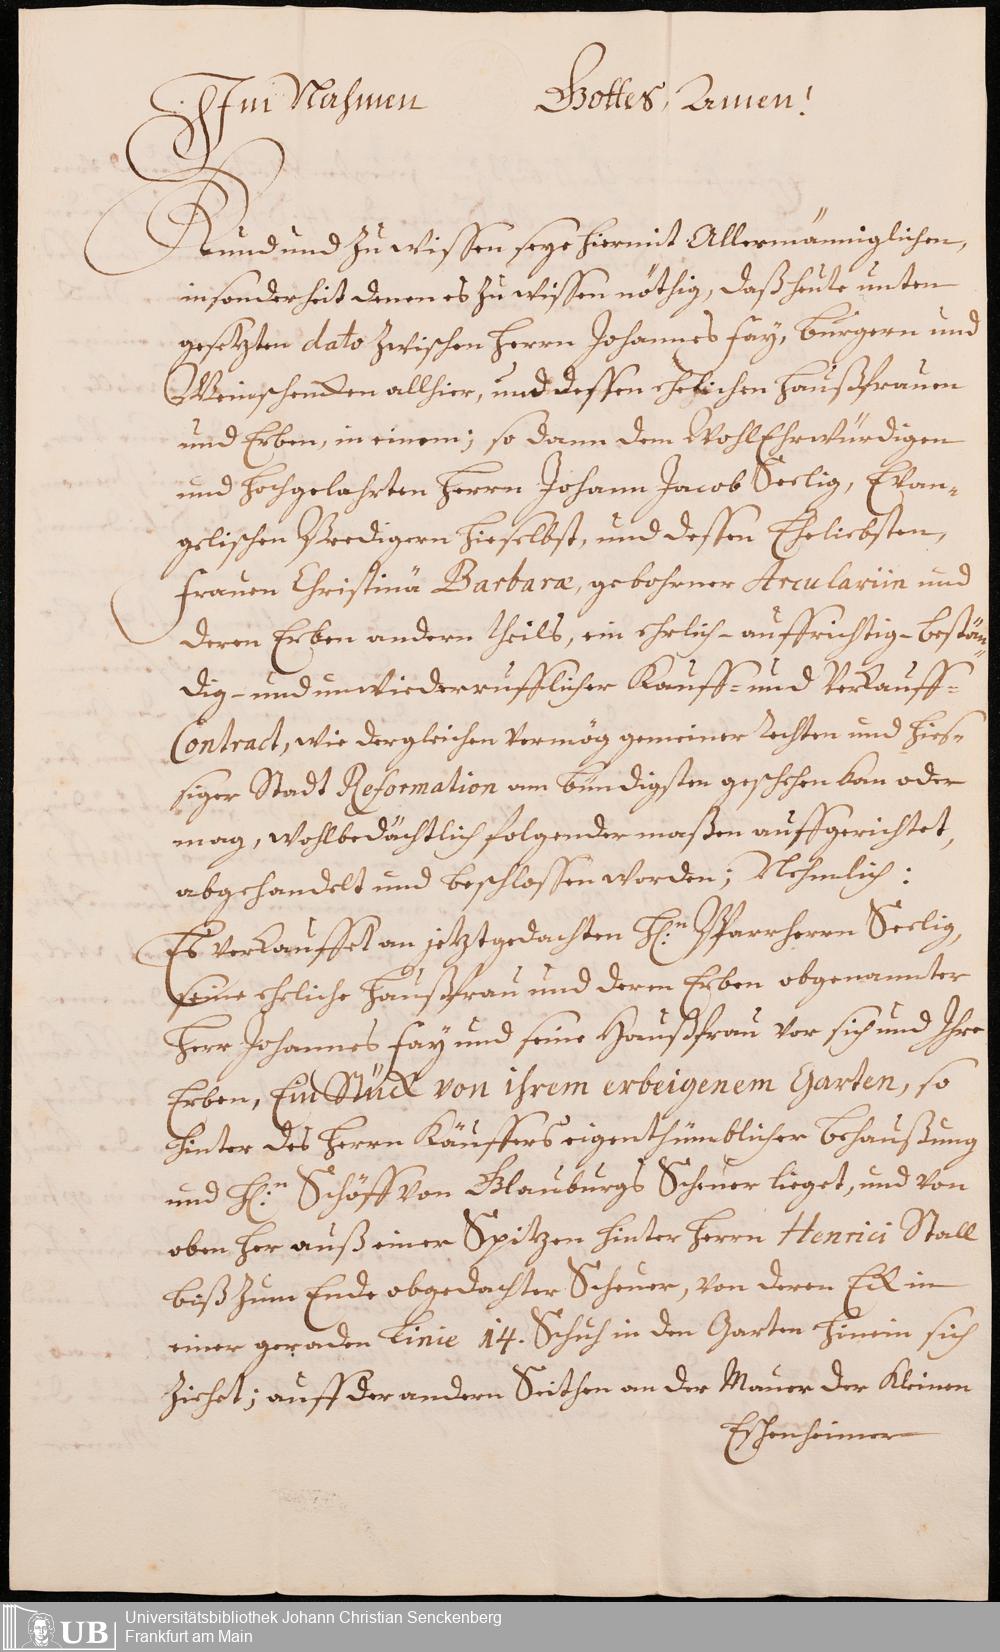 Im Nahmen Gottes, Amen!
Kund und zu wissen seye hiermit Allermänniglichen,
insonderheit denen es zu wissen nöthig, daß heute unten
gesetzten dato zwischen Herrn Johannes Fay, Burgern und
Weinschencken allhier, und dessen ehelichen Haußfrauen
und Erben, in einem; so dann dem WohlEhrwürdigen
und Hochgelahrten Herrn Johann Jacob Seelig, Evan-
gelischen Predigern hieselbst, und dessen Eheliebsten,
Frauen Christinä Barbaræ, gebohrner Arculariin und
deren Erben andern theils, ein ehrlich-auffrichtig-bestän-
dig-und unwiederrufflicher Kauff- und Verkauff-
Contract, wie dergleichen vermög gemeiner Rechten und hies-
siger Stadt Reformation am bündigsten geschehen kan oder
mag, wohlbedächtlich folgender maßen auffgerichtet,
abgehandelt und beschlossen worden; Nehmlich:
Es verkauffet an jetztgedachten H:n Pfarrherrn Seelig,
seine eheliche Haußfrau und deren Erben obgenannter
Herr Johannes Fay und seine Haußfrau vor sich und Ihre
Erben, Ein Stück von ihrem erbeigenem Garten, so
hinter des Herrn Käuffers eigenthümblicher Behaußung
und H:n Schöff von Glauburgs Scheuer lieget, und von
oben her auß einer Spitzen hinter Herrn Henrici Stall
biß zum Ende obgedachter Scheuer, von deren Eck in
einer geraden Linie 14. Schuh in den Garten hinein sich
ziehet; auff der andern Seithen an der Mauer der Kleinen
Eschenheimer
UB
Universitätsbibliothek Johann Christian Senckenberg
Frankfurt am Main